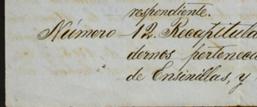 respondiente.
Número 12. Recapitula
dernos pertenec
de Ensinillas, y